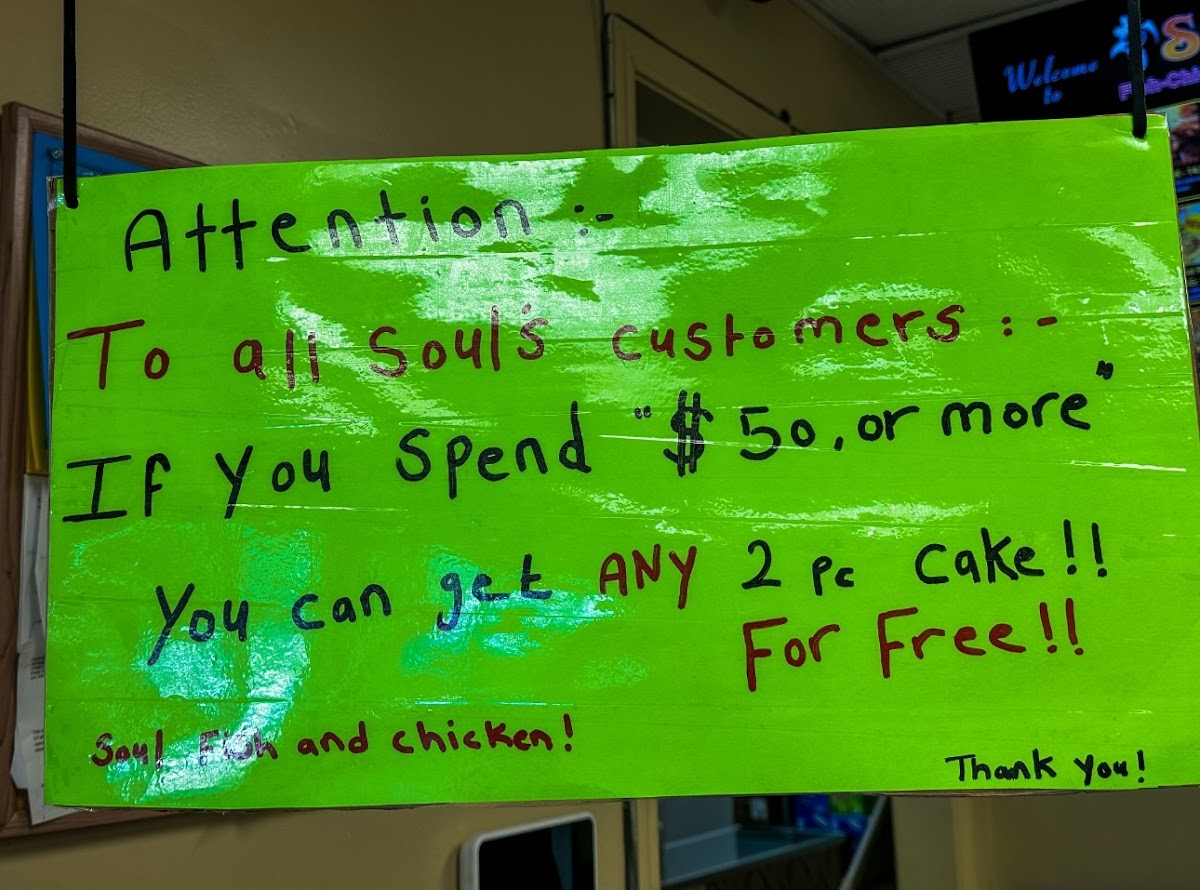 Attention :-
To all Soul's customers :-
If You Spend "$ 50, or more"
You can get ANY 2 pc cake!!
For Free!!
Soul Fish and chicken!
Thank you!
Welcome
to